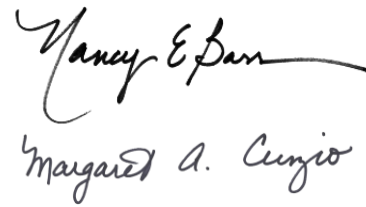 Nancy E Barr
Margaret A. Cunzio